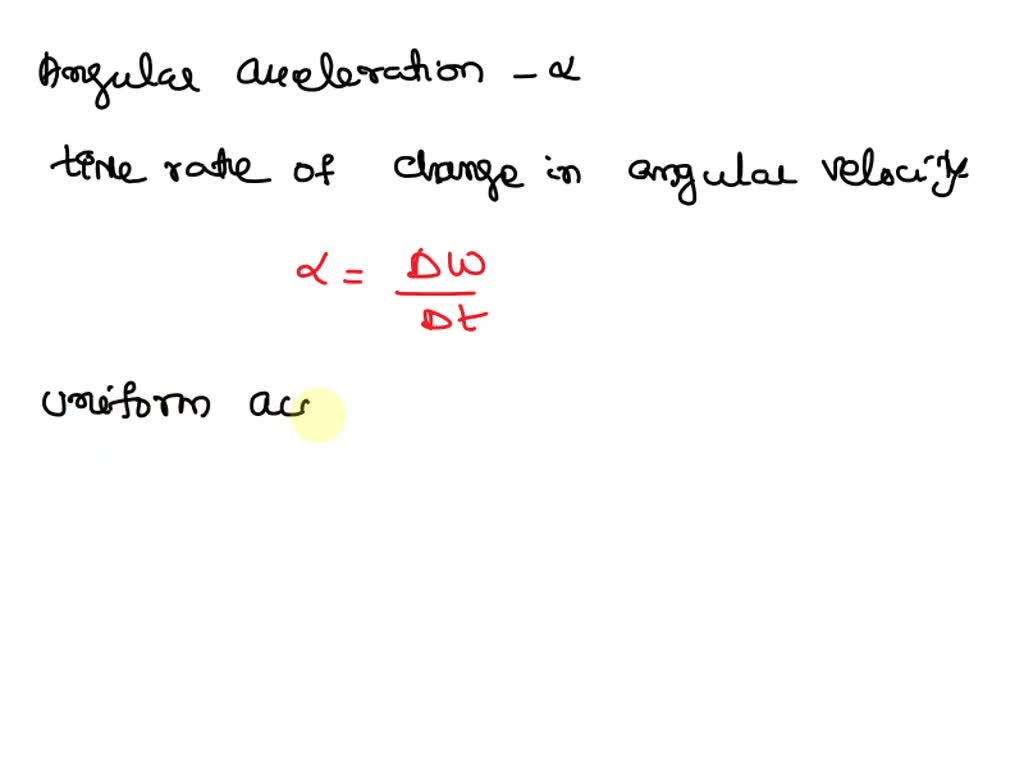 Angular acceleration - α
time rate of change in angular velocity
α = Δω
Δt
uniform acc